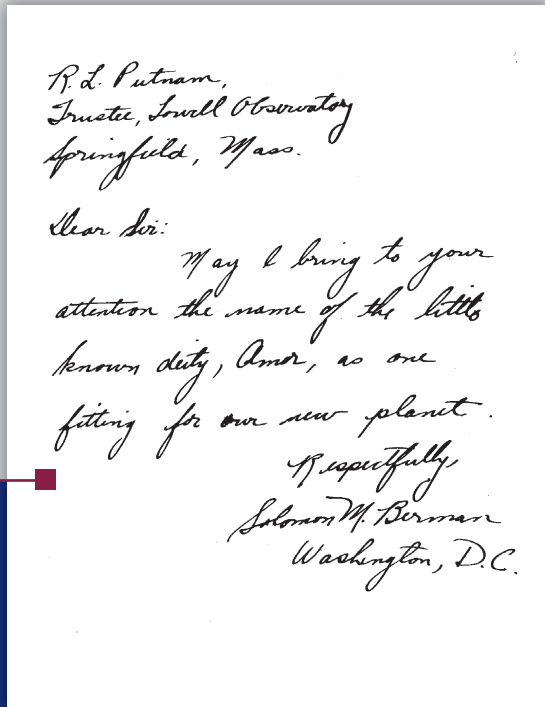 R. L. Putnam,
Trustee, Lowell Observatory
Springfield, Mass.
Dear Sir:
May I bring to your
attention the name of the little
known deity, Amor, as one
fitting for our new planet.
Respectfully,
Solomon M. Berman
Washington, D.C.